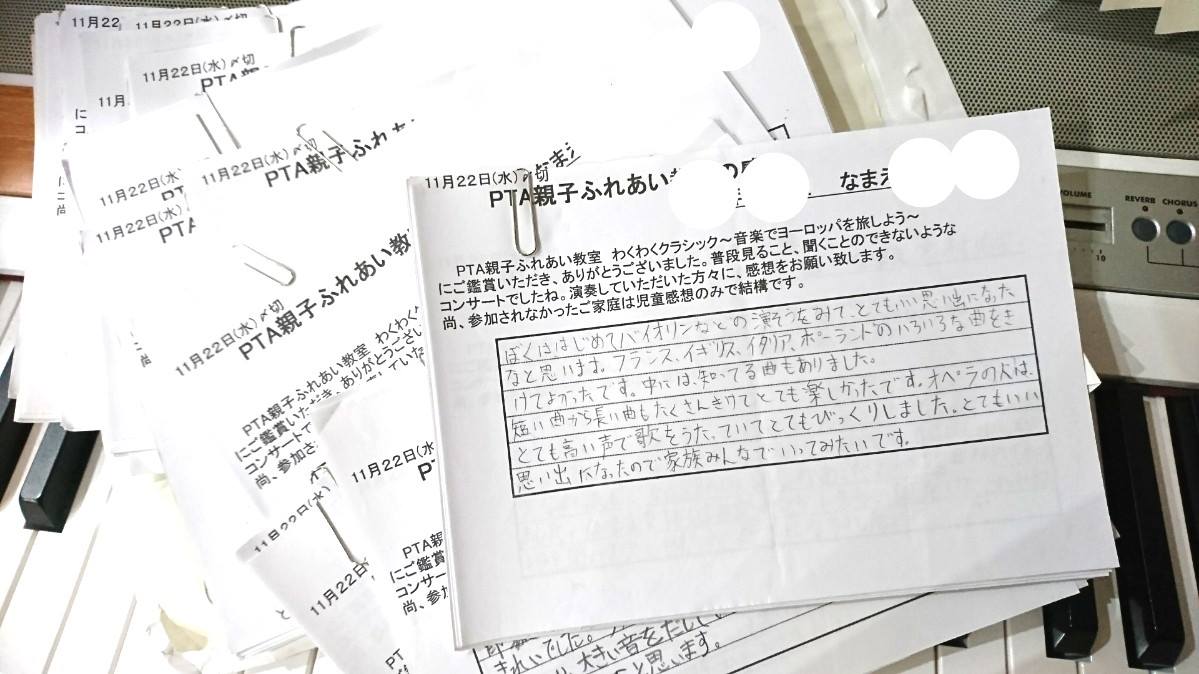 11月22
11月22日(水)〆切
11月22日(水)〆切
PTA親
11月2
11月22日(水)〆切
11月22日(水)〆切
PTA親子ふれあ
11月22日(水)
PTA
11月22日(水)〆切
PTA親子ふれあい教
PTA親子ふれあい教室 わくわく
にご鑑賞いただき、ありがとうござい
コンサートでしたね。演奏していた
尚、参加さ
11月22日(水)〆切
PTA親子ふれあい
なまえ
PTA親子ふれあい教室 わくわくクラシック～音楽でヨーロッパを旅しよう～
にご鑑賞いただき、ありがとうございました。普段見ること、聞くことのできないような
コンサートでしたね。演奏していただいた方々に、感想をお願い致します。
尚、参加されなかったご家庭は児童感想のみで結構です。
ぼくははじめてバイオリンなどの演そうをみて、とてもいい思い出になった
なと思います。フランス、イギリス、イタリア、ポーランドのいろいろな曲をき
けてよかったです。中には、知ってる曲もありました。
短い曲から長い曲もたくさんきけてとても楽しかったです。オペラの人は、
とても高い声で歌をうたっていてとてもびっくりしました。とてもいい
思い出になったので家族みんなでいってみたいです。
11月22日(水
PT
11月22日(水)
11月22日(水
PTA親
にご鑑賞
コンサー
尚、参加
PT
きれいでした。
大きい音をだして
と思います。
VOLUME
10
REVERB
CHORUS